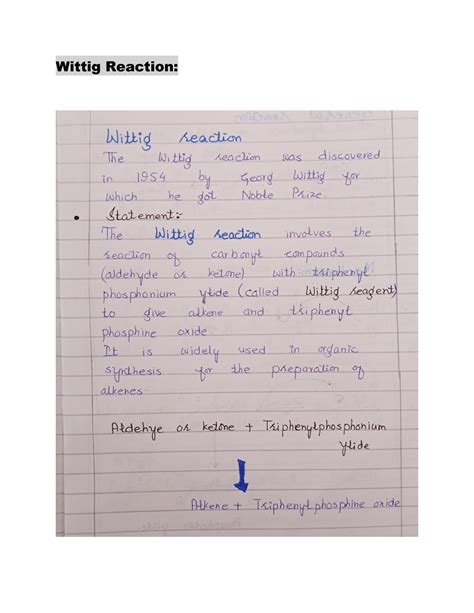 Wittig Reaction:
Wittig reaction
The Wittig reaction was discovered
in 1954 by Georg Wittig for
which he got Noble Prize.
• Statement:-
The Wittig reaction involves the
reaction of carbonyl compounds
(aldehyde or ketone) with triphenyl
phosphonium ylide (called Wittig reagent)
to give alkene and triphenyl
phosphine oxide
It is widely used in organic
synthesis for the preparation of
alkenes.
Aldehye or ketone + Triphenylphosphonium
ylide
Alkene + Triphenylphosphine oxide